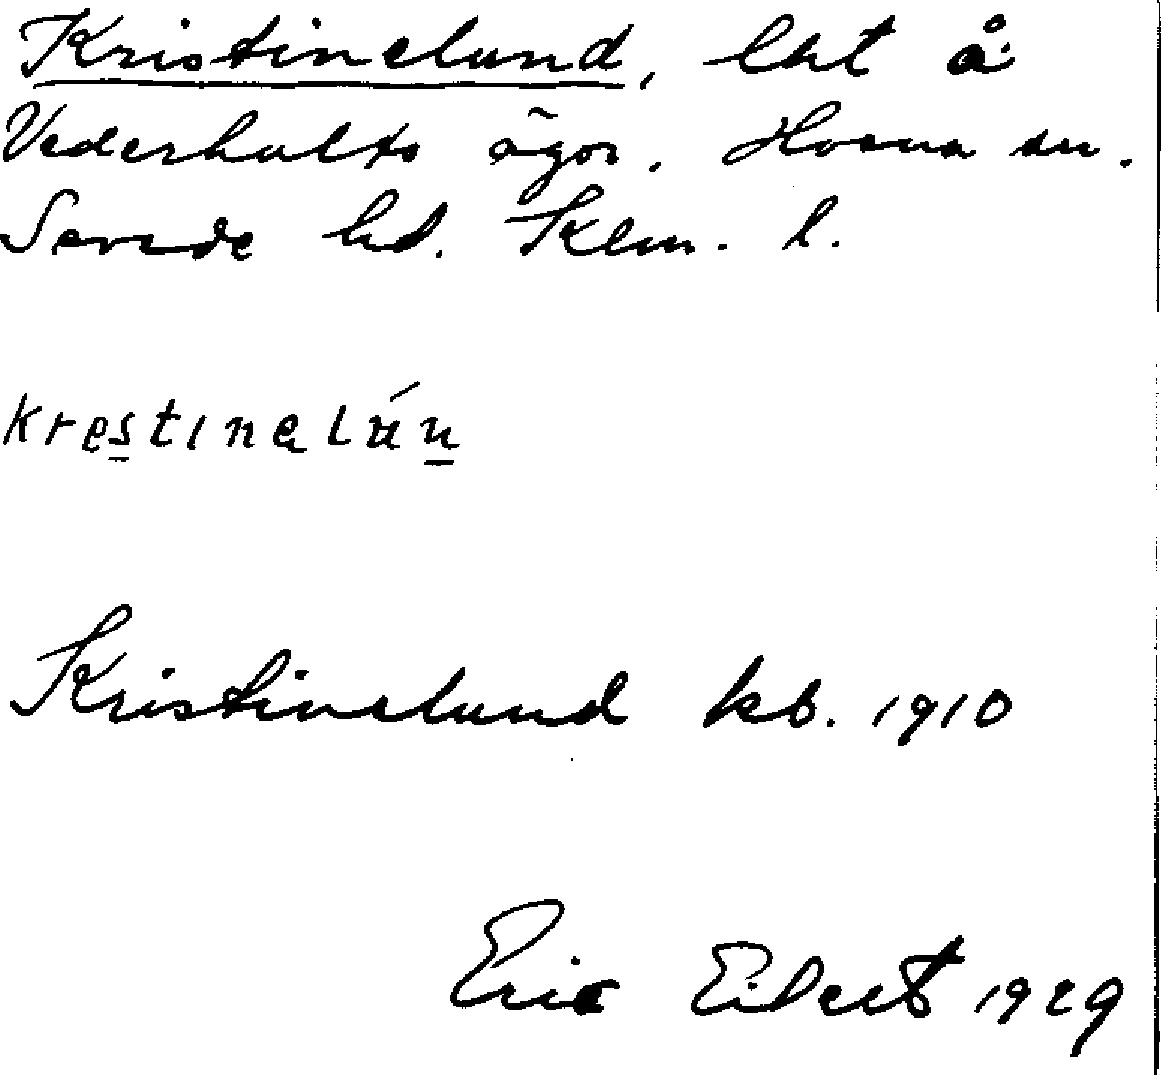 Kristinelund, lht å
Vederhults ägor. sn.
Sevede hd. Klm. l.
krestinelún
Kristinelund kb. 1910
Eric Eibert 1929